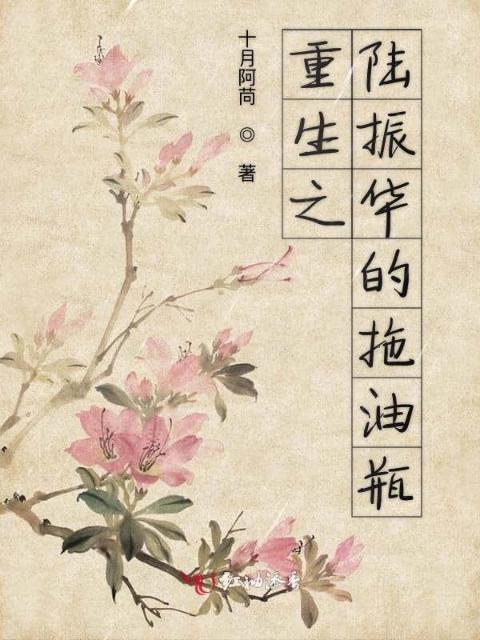 陆振华的拖油瓶
重生之
十月阿苘 ◎ 著
红袖添香